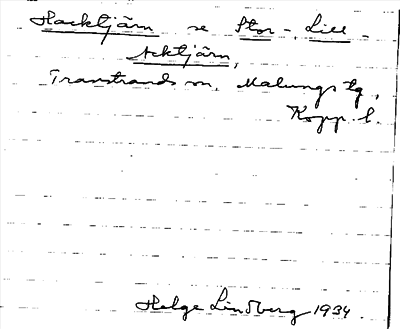 Hacktjärn se Stor-, Lill-
Acktjärn,
Transtrands sn, Malungs tg,
Kopp. l.
Helge Lindberg 1934